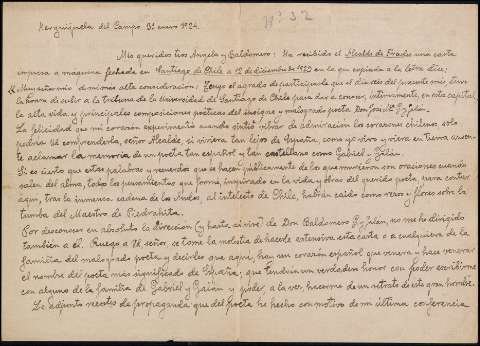 Nº 32
Mis queridos tios Angela y Baldomero: Ha recibido el Alcalde de Frades una carta
impresa a maquina fechada en Santiago de Chile a 12 de diciembre de 1923 en la que copiada a la letra dice:
Muy señor mio de mi mas alta consideracion: Tengo el agrado de participarle que el dia del presente mes tuve
la honra de subir a la tribuna de la Universidad de Santiago de Chile para dar a conocer, intimamente, en esta capital,
la alta vida y principales composiciones poéticas del insigne y malogrado poeta Don José Mª G. y Galan.
La felicidad que mi corazón experimentó cuando sintió vibrar de admiración los corazones chilenos, solo
podria Vd comprenderla, señor Alcalde, si viviera tan lejos de España, como yo vivo y viera en tierra
aclamar la memoria de un poeta tan español y tan castellano como Gabriel y Galán.
Si es cierto que estas palabras y recuerdos que se hacen públicamente de los que murieron son oraciones cuando
salen del alma, todos los pensamientos que formé, inspirado en la vida y obras del querido poeta, para contar
aqui, tras la inmensa cadena de los Andes, al intelecto de Chile, habrán caido como rezos y flores sobre la
tumba del Maestro de Piedrahita.
Por desconocer en absoluto la dirección (y hasta si vive) de Don Baldomero G. y Galan, no me he dirigido
tambien a él. Ruego a Vd, señor, se tome la molestia de hacerle extensiva esta carta o a cualquiera de la
familia del malogrado poeta y decirles que aqui, hay un corazón español que venera y hace venerar
el nombre del poeta más significado de España; que tendria un verdadero honor con poder escribirme
con alguno de la familia de Gabriel y Galán y poder, a la vez, hacerme de un retrato de este gran hombre.
Le adjunto recortes de propaganda que del poeta he hecho con motivo de mi última conferencia